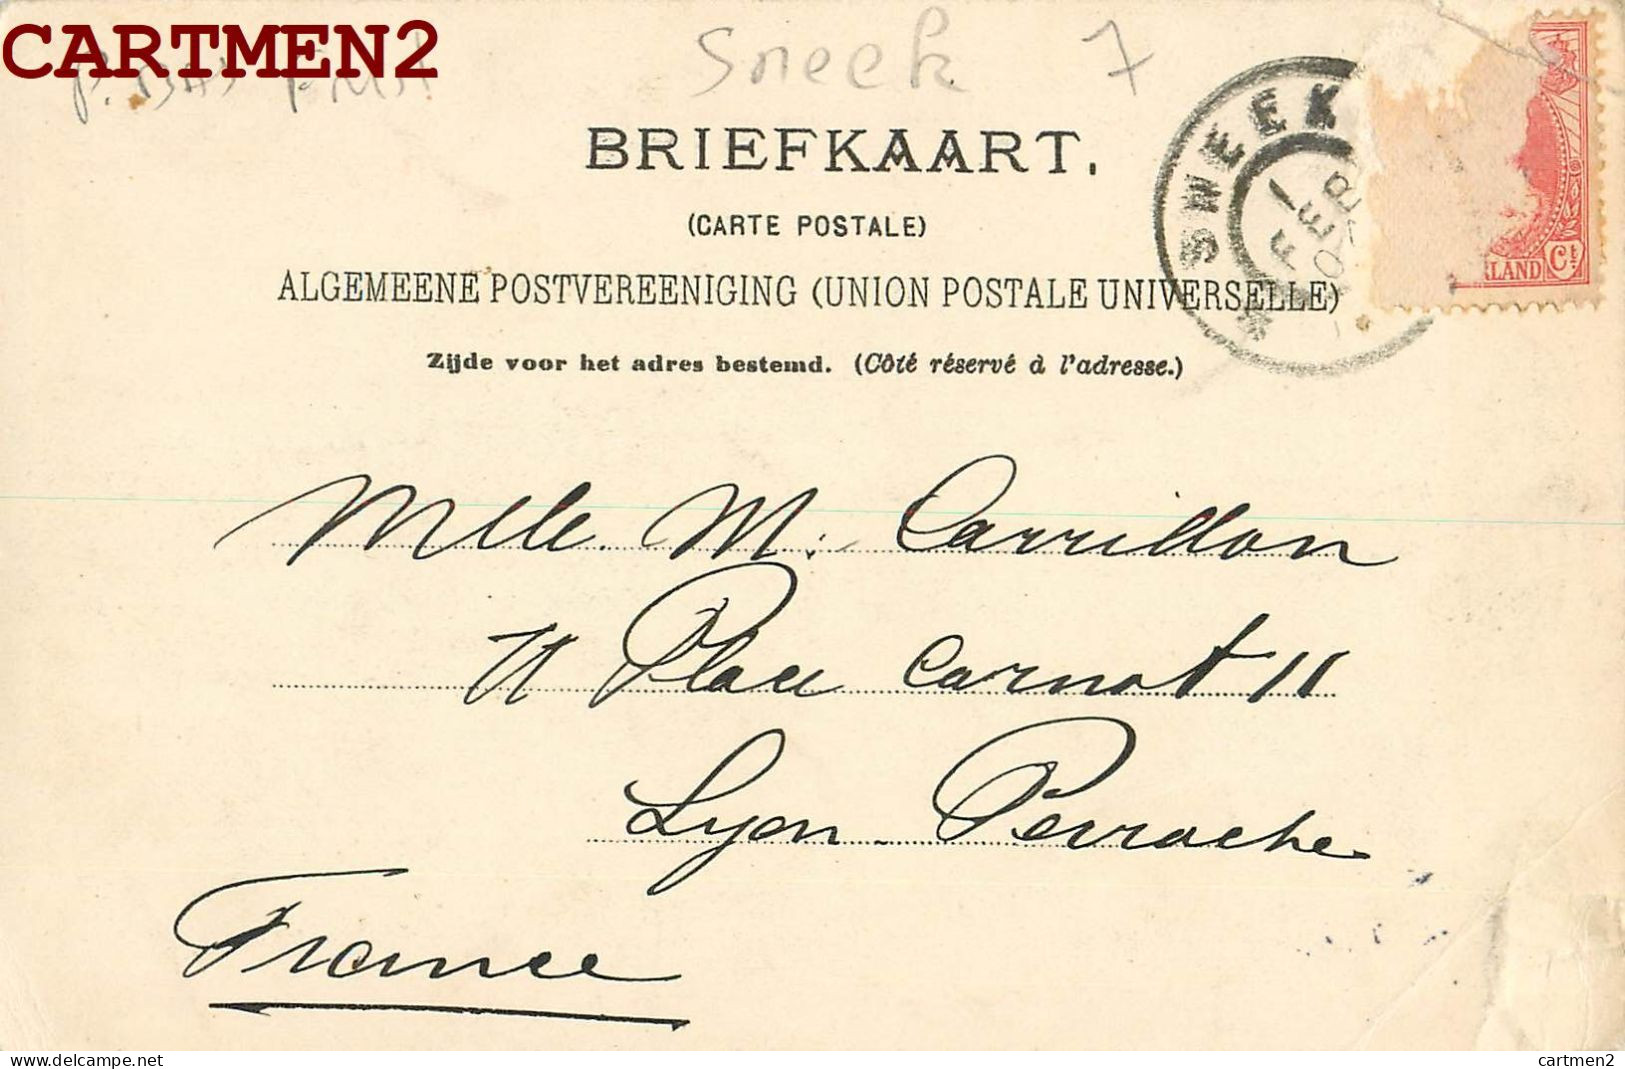 CARTMEN2
P. BAS
Sneek 7
BRIEFKAART.
(CARTE POSTALE)
ALGEMEENE POSTVEREENIGING (UNION POSTALE UNIVERSELLE)
Zijde voor het adres bestemd. (Côté réservé à l'adresse.)
SNEEK
1 FEB
RLAND Ct.
Mlle. M. Carrillon
11 Place Carnot 11
Lyon-Perrache
France
cartmen2